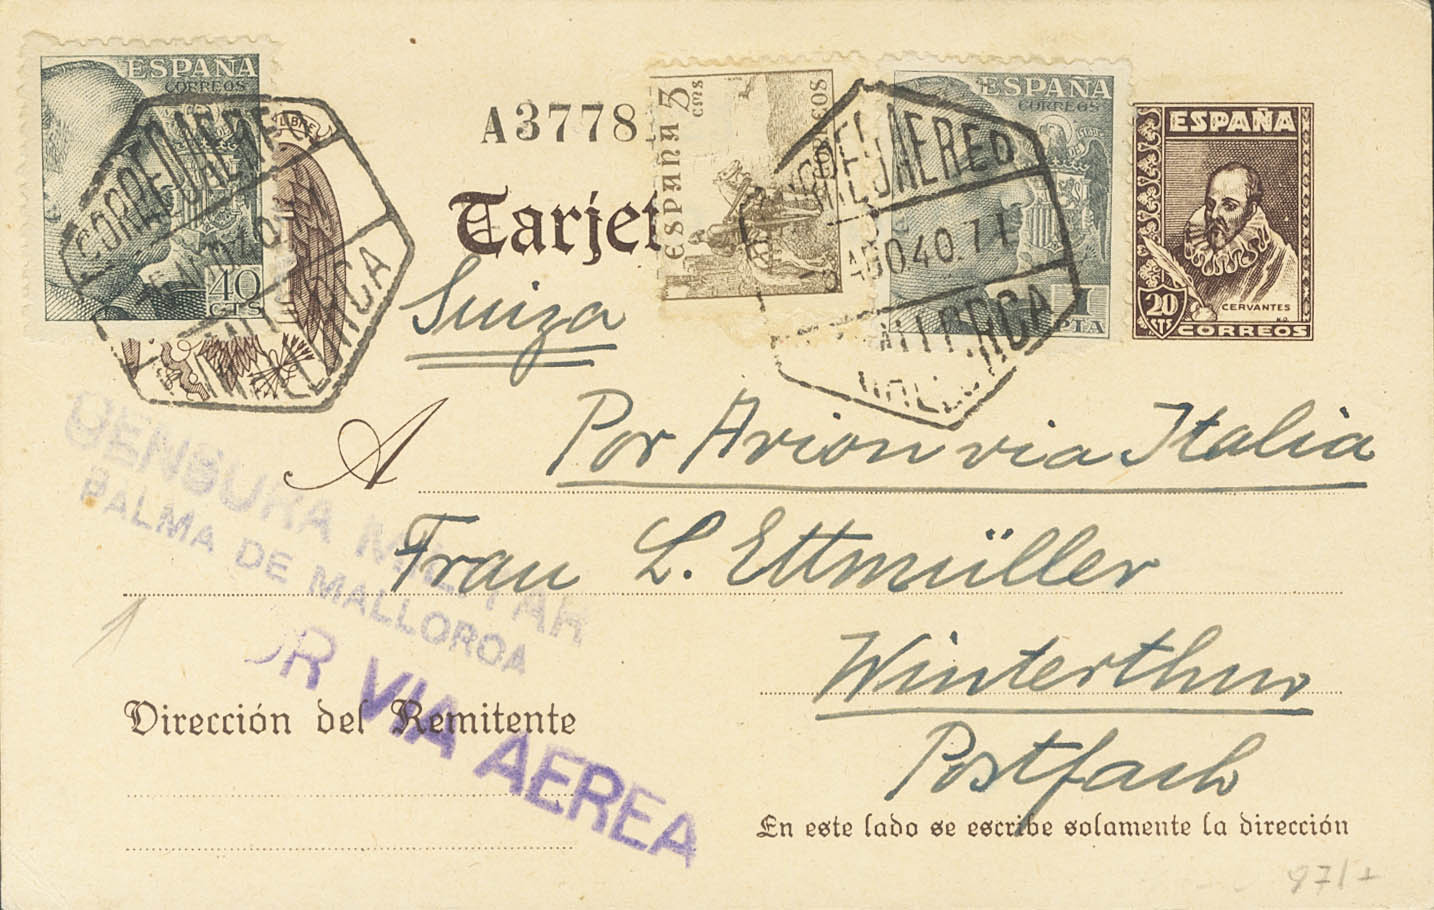 ESPAÑA
CORREOS
40
CTS
LIBRE
CORREO AEREO
MALLORCA
A3778
Tarjet
ESPAÑA 5 cms
CORREOS
ESPAÑA
CORREOS
1
PTA
AEREO
AGO.40.7T
MALLORCA
ESPAÑA
CERVANTES
20
CTS
CORREOS
Suiza
A Por Avion via Italia
Frau L. Ettmüller
Winterthur
Postfach
CENSURA MILITAR
PALMA DE MALLORCA
OR VIA AEREA
Dirección del Remitente
En este lado se escribe solamente la dirección